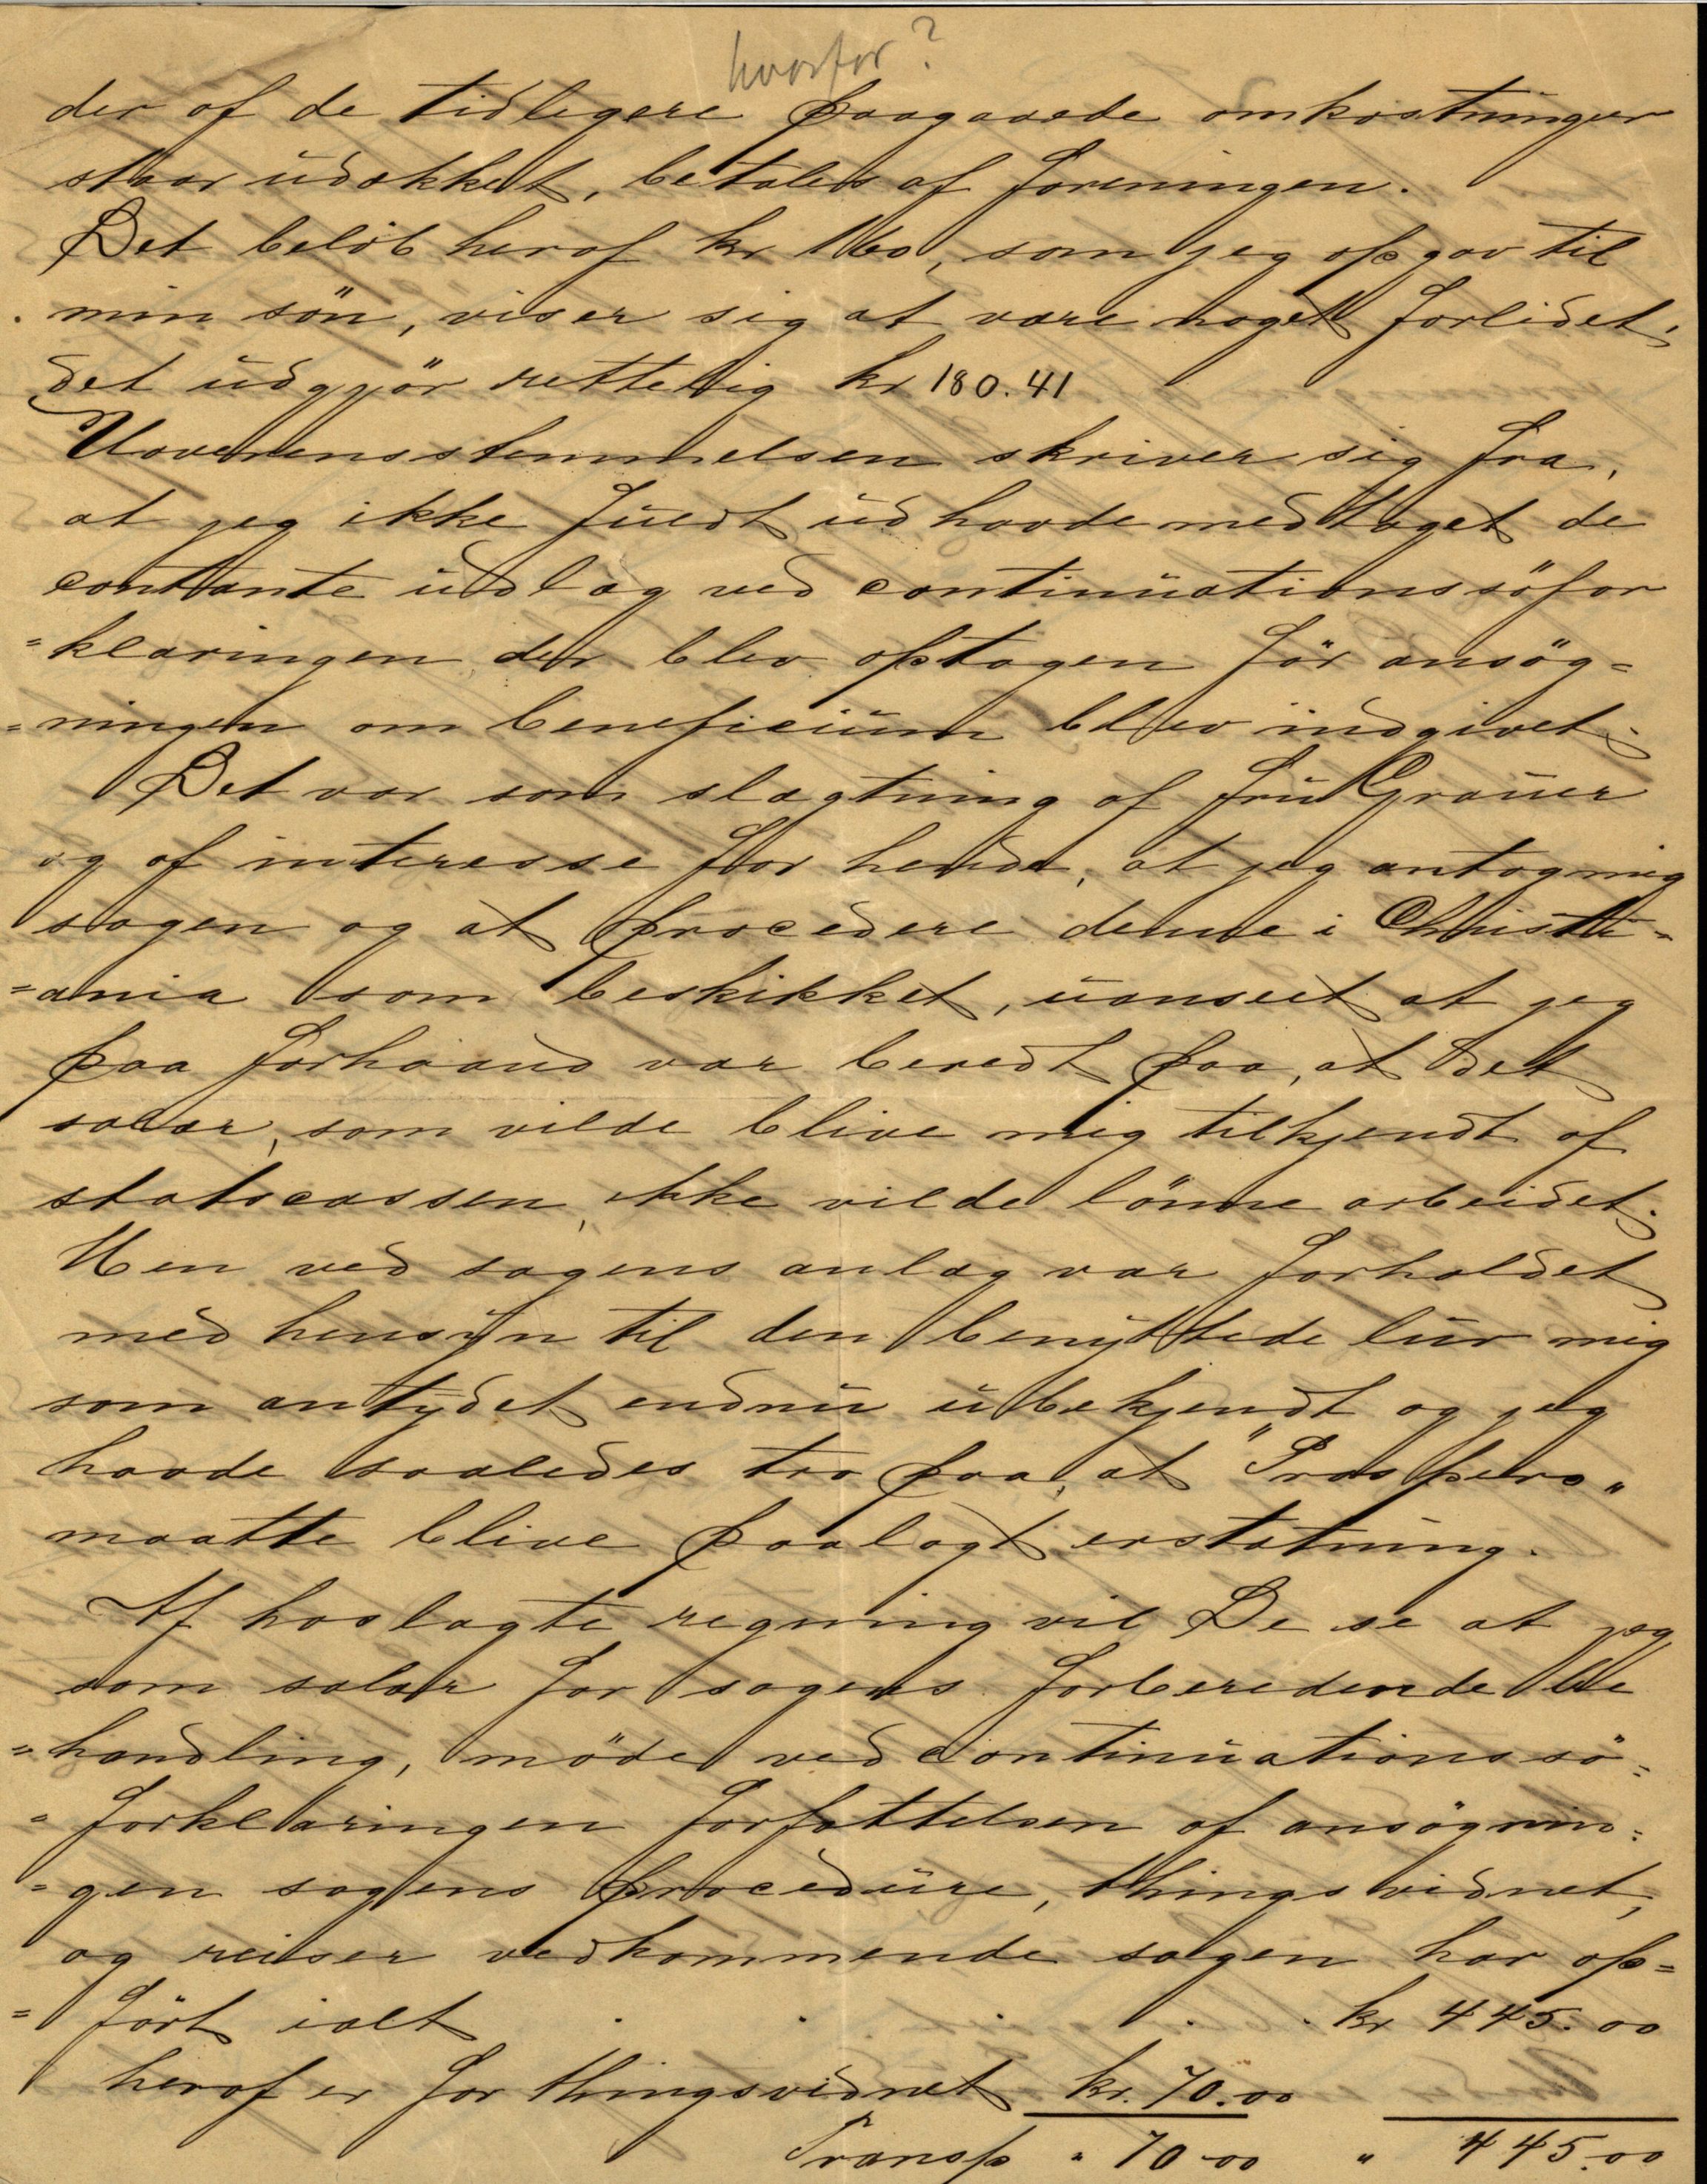 hvorfor?
der af de tidligere paagaaede omkostninger
staar udækket, betales af foreningen.
Det belöb heraf kr 160, som jeg opgav til
min sön, viser sig at være noget forlidet,
det udgjör rettelig kr 180.41
Uoverensstemmelsen skriver sig fra,
at jeg ikke fuldt ud havde medtaget de
contante udlæg ved continuationssöfor
=klaringen, der blev optagen för ansög=
=ningen om beneficium blev indgivet.
Det var som slægtning af fru Grauer
og af interesse for hende, at jeg antog mig
sagen og at procedere denne i Christi=
=ania som beskikket, uanseet at jeg
paa forhaand var beredt paa, at det
salær, som vilde blive mig tilkjendt af
statscassen, ikke vilde lönne arbeidet.
Men ved sagens anlæg var forholdet
med hensyn til den benyttede lur mig
som antydet endnu ubekjendt og jeg
havde saaledes tro paa, at "Prospero"
maatte blive paalagt erstatning.
Af hoslagte regning vil De se at jeg
som salær for sagens forberedende be
=handling, möde ved continuationssö=
=forklaringen forfattelsen af ansögnin=
=gen sagens procedure, thingsvidnet,
og reiser vedkommende sagen har op=
=fört ialt . . . . . kr 445.00
heraf er for thingsvidnet kr. 70.00
Transp " 70.00 " 445.00